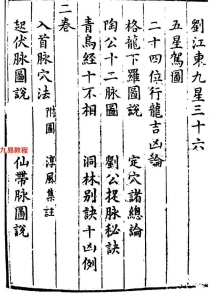 劉江東九星三十六
五星駕圖
二十四位行龍吉凶論
格龍下羅圖說　定穴諸總論
陶公十二脉圖　劉公捉脉秘訣
青烏經十不相　洞林别訣十凶例
二卷
入首脉穴法 附圖　淳風集註
起伏脉圖說　仙帶脉圖說
九易教程